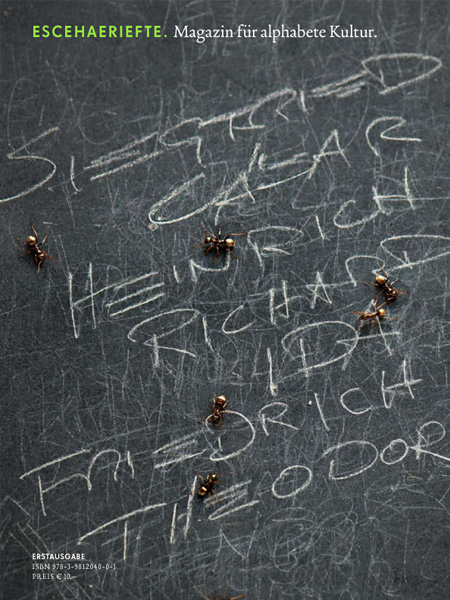 ESCEHAERIEFTE. Magazin für alphabete Kultur.
SIEGFRIED
CAESAR
HEINRICH
RICHARD
IDA
FRIEDRICH
THEODOR
ERSTAUSGABE
ISBN 978-3-9812040-0-1
PREIS € 10,–